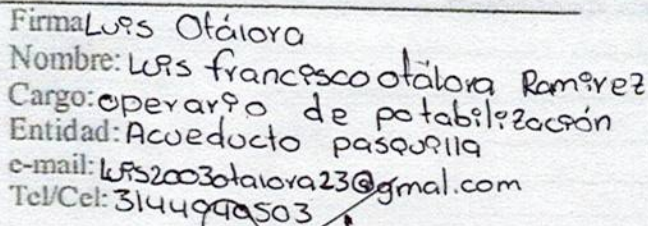 Firma Luis Otálora
Nombre: Luis francisco otálora Ramirez
Cargo: operario de potabilización
Entidad: Acueducto pasquilla
e-mail: luis2003otalora23@gmal.com
Tel/Cel: 3144999503